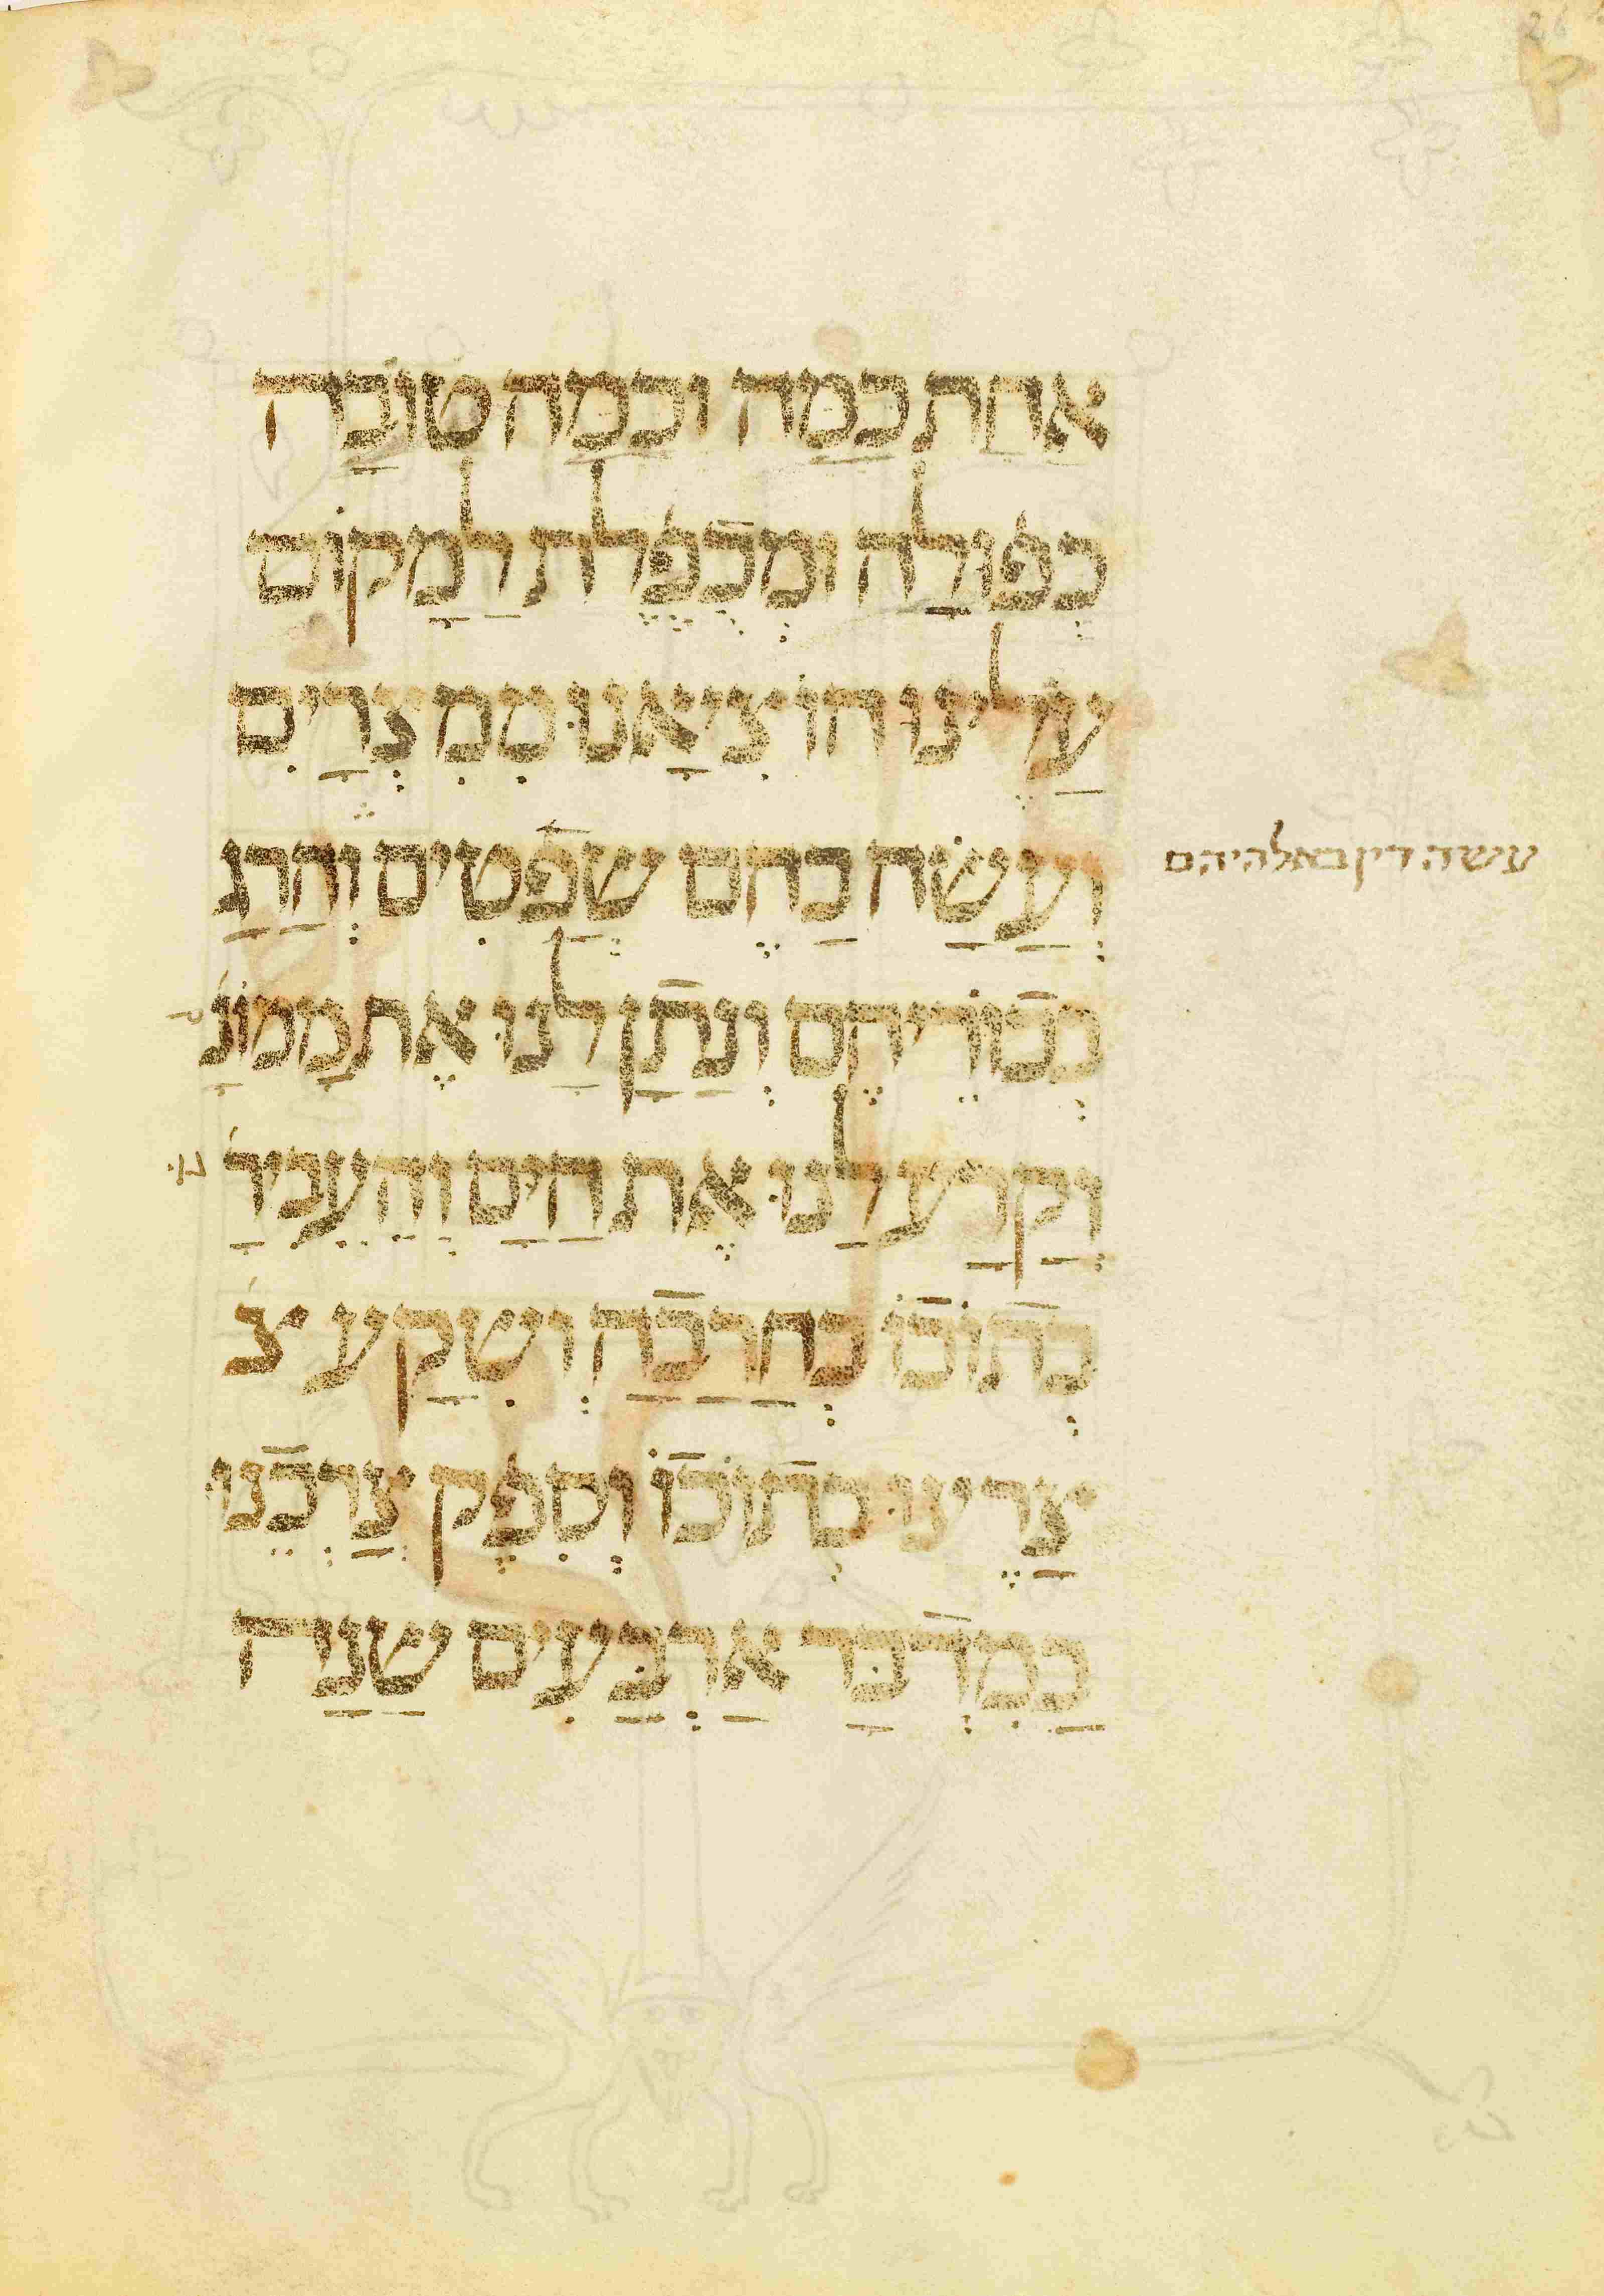 אחת כמה וכמה טובה
כפולה ומכפלת למקום
עלינו הוציאנו ממצרים
ועשה בהם שפטים והרג
עשה דין באלהיהם
בכוריהם ונתן לנו את ממונ
וקרע לנו את הים והעביר
נו
בתוכו בחרבה ושקע צ
צרינו בתוכו וספק צרכנו
במדבר ארבעים שנה